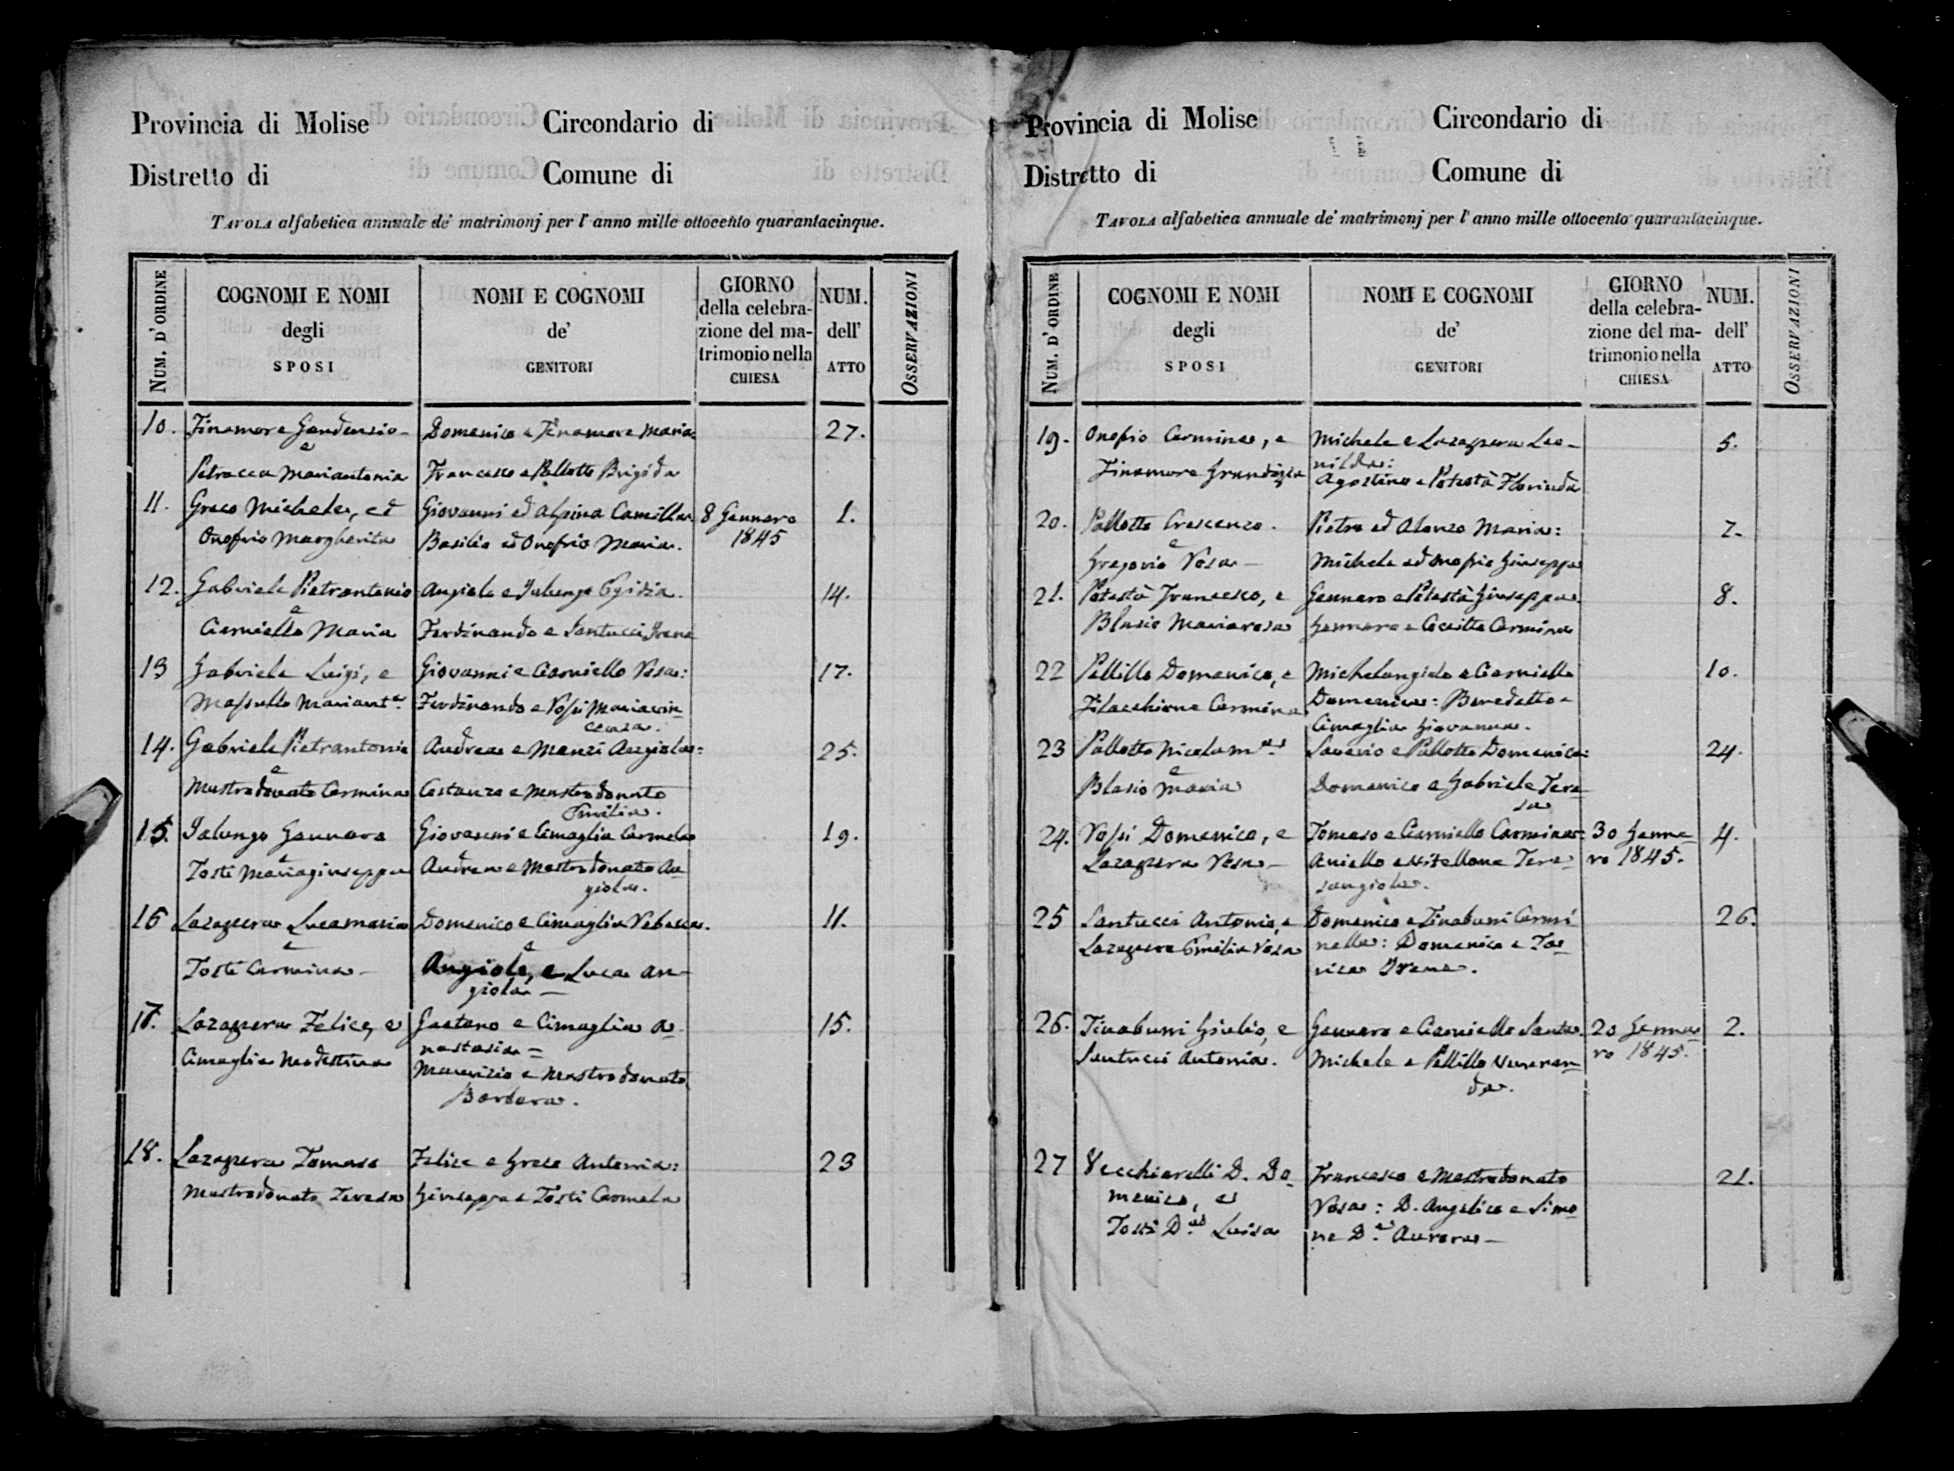 Provincia di Molise Circondario di
Distretto di Comune di
TAVOLA alfabetica annuale de' matrimonj per l'anno mille ottocento quarantacinque.
NUM. D'ORDINE
COGNOMI E NOMI
degli
SPOSI
NOMI E COGNOMI
de'
GENITORI
GIORNO
della celebra-
zione del ma-
trimonio nella
CHIESA
NUM.
dell'
ATTO
OSSERVAZIONI
10. Finamore Gaudenzio Domenico e Finamore Maria 27.
e
Petracca Mariantonia Francesco e Pallotto Brigida
11. Greco Michele, ed Giovanni ed Alpina Camilla 8 Gennaro 1.
Onofrio Margherita Basilio ed Onofrio Maria. 1845
12. Gabriele Pietrantonio Angiolo e Ialungo Egidia. 14.
e
Ciarniello Maria Ferdinando e Santucci Irene
13 Gabriele Luigi, e Giovanni e Ciarniello Rosa: 17.
Massullo Mariant.a Ferdinando e Rossi Mariavin-
cenza.
14. Gabriele Pietrantonio Andrea e Manzi Angiola: 25.
e
Mastrodonato Carmina Costanzo e Mastrodonato
Emilia.
15. Ialungo Gennaro Giovanni e Cimaglia Carmela 19.
e
Tosti Mariagiuseppa Andrea e Mastrodonato An-
giola.
16 Lazazzera Lucamaria Domenico e Cimaglia Rebecca. 11.
e
Tosti Carmina Angiolo, e Luca An-
giola
17. Lazazzera Felice, e Gaetano e Cimaglia A- 15.
Cimaglia Modestina nastasia =
Maurizio e Mastrodonato
Barbara.
18. Lazazzera Tomaso Felice e Greco Antonia: 23
Mastrodonato Teresa Giuseppe e Tosti Carmela
Provincia di Molise Circondario di
Distretto di Comune di
TAVOLA alfabetica annuale de' matrimonj per l'anno mille ottocento quarantacinque.
NUM. D'ORDINE
COGNOMI E NOMI
degli
SPOSI
NOMI E COGNOMI
de'
GENITORI
GIORNO
della celebra-
zione del ma-
trimonio nella
CHIESA
NUM.
dell'
ATTO
OSSERVAZIONI
19. Onofrio Carmine, e Michele e Lazazzera Leo- 5.
nilda:
Finamore Agostino e Potestà Florinda
20. Pallotto Crescenzo. Pietro ed Alonzo Maria: 7.
e
Gregorio Rosa Michele ed Onofrio Giuseppa
21. Potestà Francesco, e Gennaro e Potestà Giuseppa. 8.
Blasio Mariarosa Gennaro e Carmina
22 Pellillo Domenico, e Michelangiolo e Ciarniello 10.
Filacchione Carmina Domenica: Benedetto e
Cimaglia Giovanna.
23 Pallotto Nicolam.a Saverio e Pallotto Domenica: 24.
e
Blasio Maria Domenico e Gabriele Tere-
sa
24. Rossi Domenico, e Tomaso e Ciarniello Carmina: 30 Genna- 4.
Lazazzera Rosa Aniello e Vitellone Tere- ro 1845.
sangiola.
25 Santucci Antonio, e Domenico e Tinaburri Carmi- 26.
Lazazzera Emilia Rosa nella: Domenico e To-
Irene.
26. Tinaburri Giulio, e Gennaro e Ciarniello Santa. 20 Genna- 2.
Santucci Antonia. Michele e Pellillo Veneran- ro 1845.
da.
27 Vecchiarelli D. Do- Francesco e Mastrodonato 21.
menico, e Rosa: D. Angelico e Simo-
Tosti D.a Luisa ne D.a Aurora